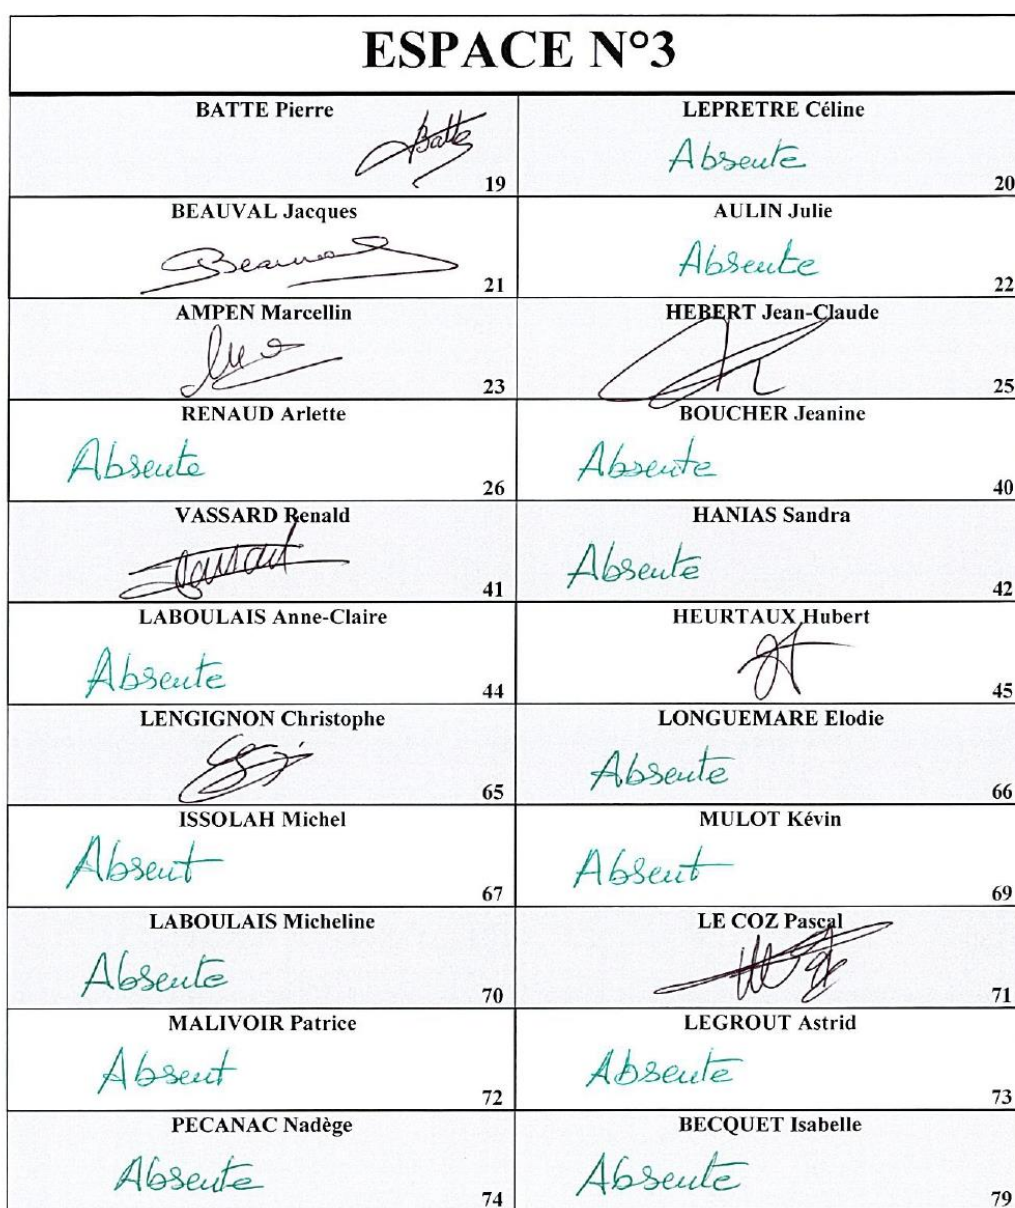 ESPACE N°3
BATTE Pierre
Batte
19
LEPRETRE Céline
Absente
20
BEAUVAL Jacques
21
AULIN Julie
Absente
22
AMPEN Marcellin
23
HEBERT Jean-Claude
25
RENAUD Arlette
Absente
26
BOUCHER Jeanine
Absente
40
VASSARD Renald
41
HANIAS Sandra
Absente
42
LABOULAIS Anne-Claire
Absente
44
HEURTAUX Hubert
45
LENGIGNON Christophe
65
LONGUEMARE Elodie
Absente
66
ISSOLAH Michel
Absent
67
MULOT Kévin
Absent
69
LABOULAIS Micheline
Absente
70
LE COZ Pascal
71
MALIVOIR Patrice
Absent
72
LEGROUT Astrid
Absente
73
PECANAC Nadège
Absente
74
BECQUET Isabelle
Absente
79